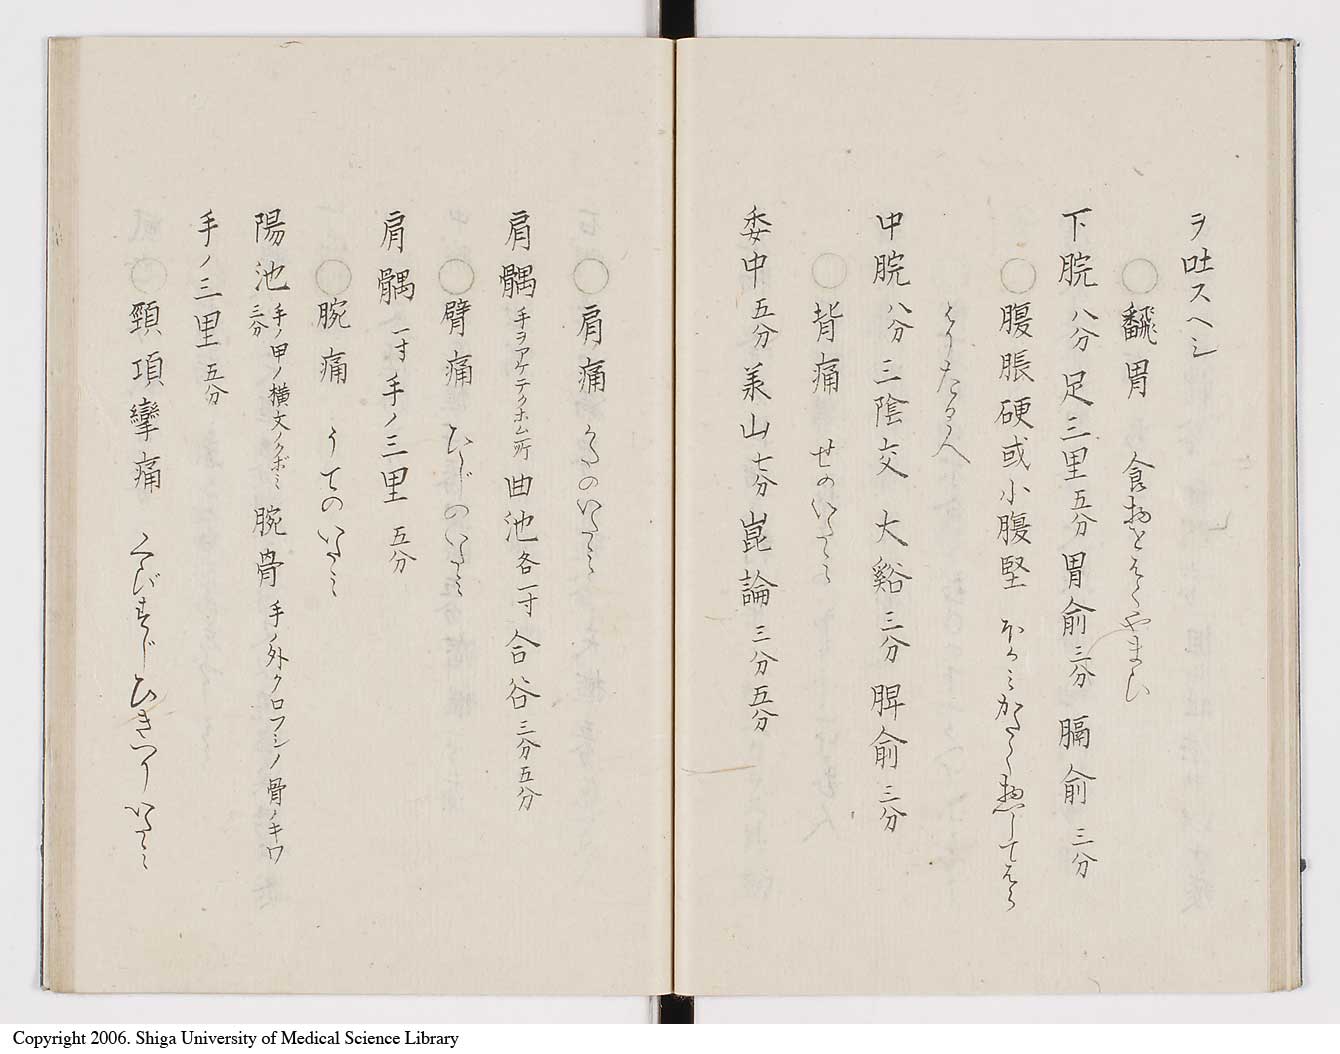 ヲ吐スヘシ
○飜胃 食物をはくやまひ
下脘八分足三里五分胃俞三分 膈俞三分
○腹脹硬或小腹堅 ほかミかたく惣してはら
はりたる人
中脘八分三陰交 大谿三分脾俞三分
○背痛 せのいたミ
委中五分羕山七分崑論三分五分
○肩痛 かたのいたミ
肩髃手ヲアケテクホム所曲池各一寸合谷三分五分
○臂痛 ひぢのいたミ
肩髃一寸手ノ三里五分
○腕痛 うてのいたミ
陽池手ノ甲ノ横文ノクボミ三分腕骨手ノ外クロフシノ骨ノキワ
手ノ三里五分
○頸項攣痛 くびすぢひきつりいたミ
Copyright 2006. Shiga University of Medical Science Library